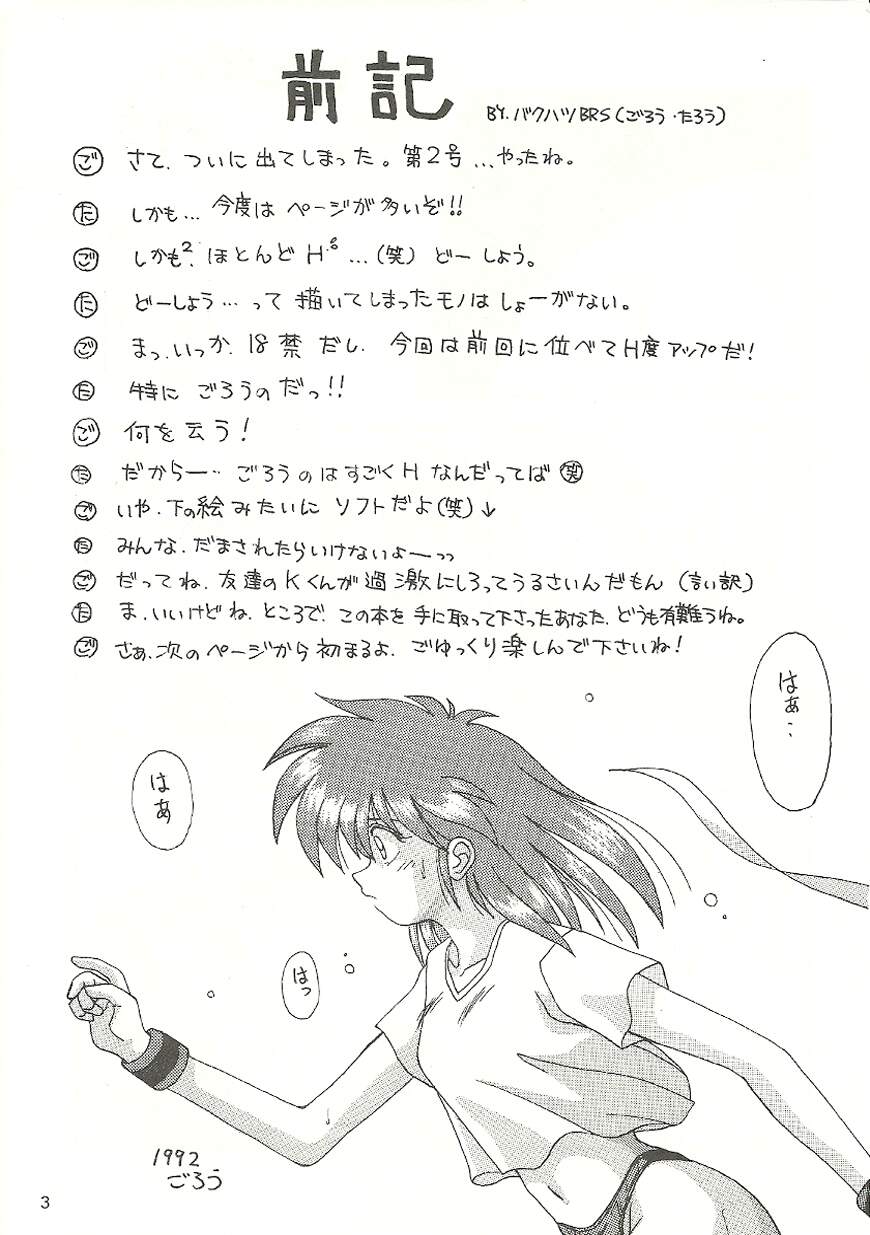 前記
BY.バクハツBRS(ごろう・たろう)
ご さて、ついに出てしまった。第2号…やったね。
た しかも…今度はページが多いぞ!!
ご しかも²、ほとんどH…(笑)どーしよう。
た どーしよう…って描いてしまったモノはしょーがない。
ご まっ、いっか、18禁だし、今回は前回に位べてH度アップだ!
た 特にごろうのだっ!!
ご 何を云う!
た だからー…ごろうのはすごくHなんだってば 笑
ご いや、下の絵みたいにソフトだよ(笑)↓
た みんな、だまされたらいけないよーっっ
ご だってね、友達のKくんが過激にしろってうるさいんだもん(言い訳)
た ま、いいけどね、ところで、この本を手に取って下さったあなた、どうも有難うね。
ご さぁ、次のページから初まるよ、ごゆっくり楽しんで下さいね!
はぁ…
はぁ
はっ
1992
ごろう
3